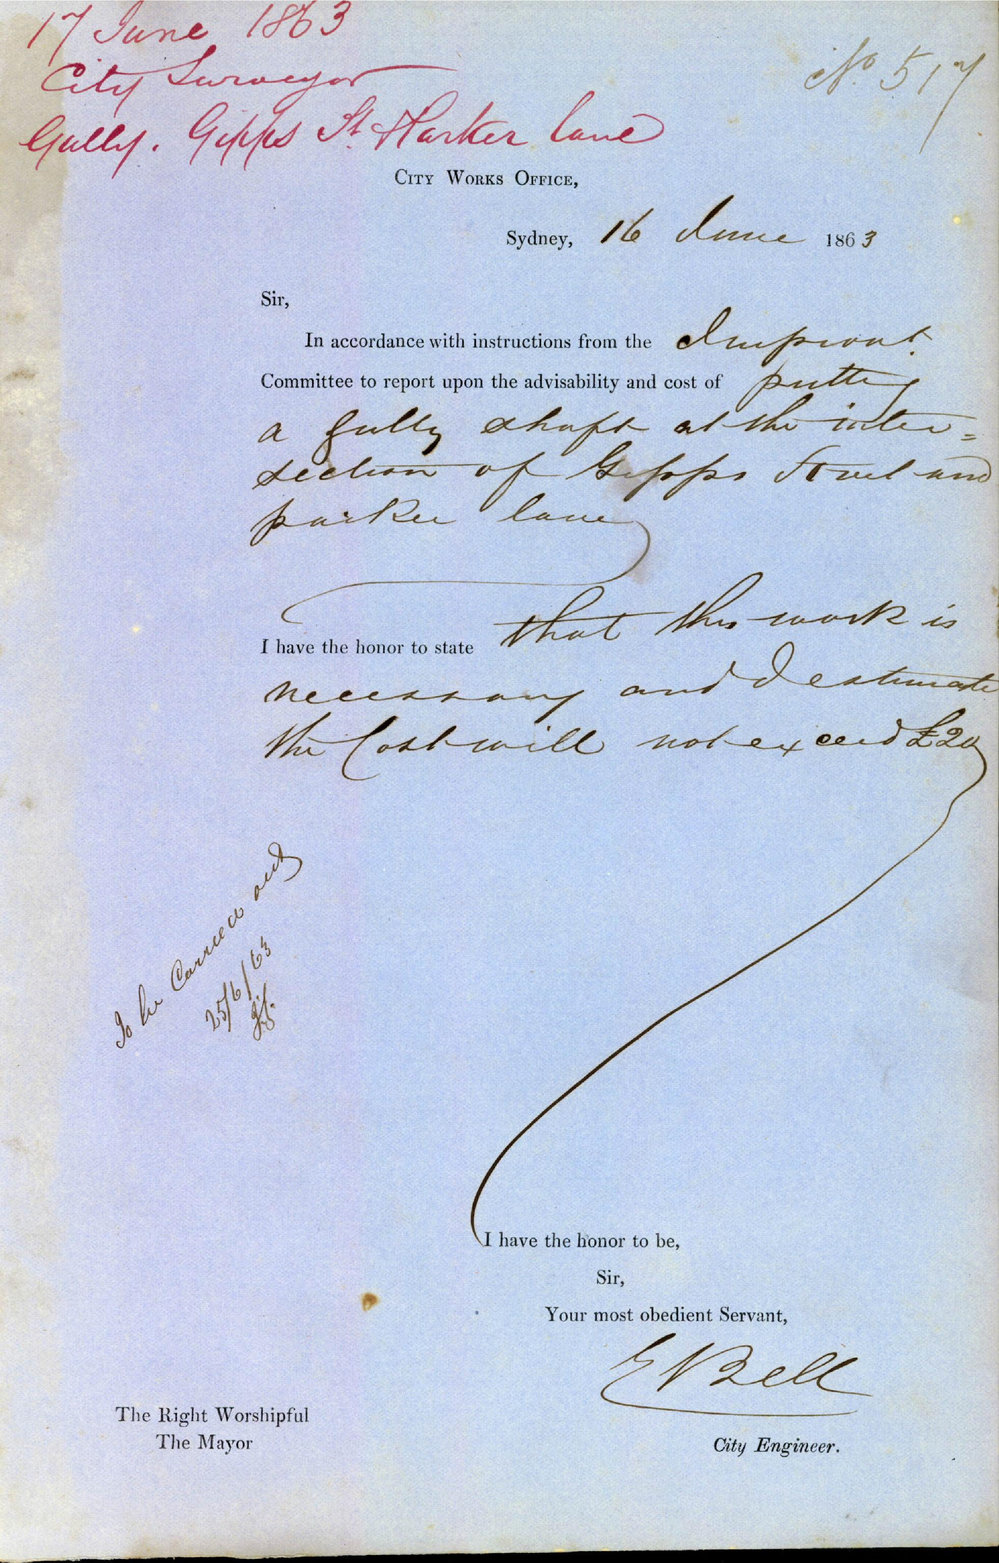 17 June 1863
City Surveyor
Gully. Gipps St & Parker lane
No. 517
City Works Office,
Sydney, 16 June 1863
Sir,
In accordance with instructions from the Improvt.
Committee to report upon the advisability and cost of putting
a gully shaft at the inter=
section of Gipps Street and
parker lane
I have the honor to state that this work is
necessary and I estimate
the Cost will not exceed £20
To be Carried out
25/6/63
I have the honor to be,
Sir,
Your most obedient Servant,
E Bell
City Engineer.
The Right Worshipful
The Mayor